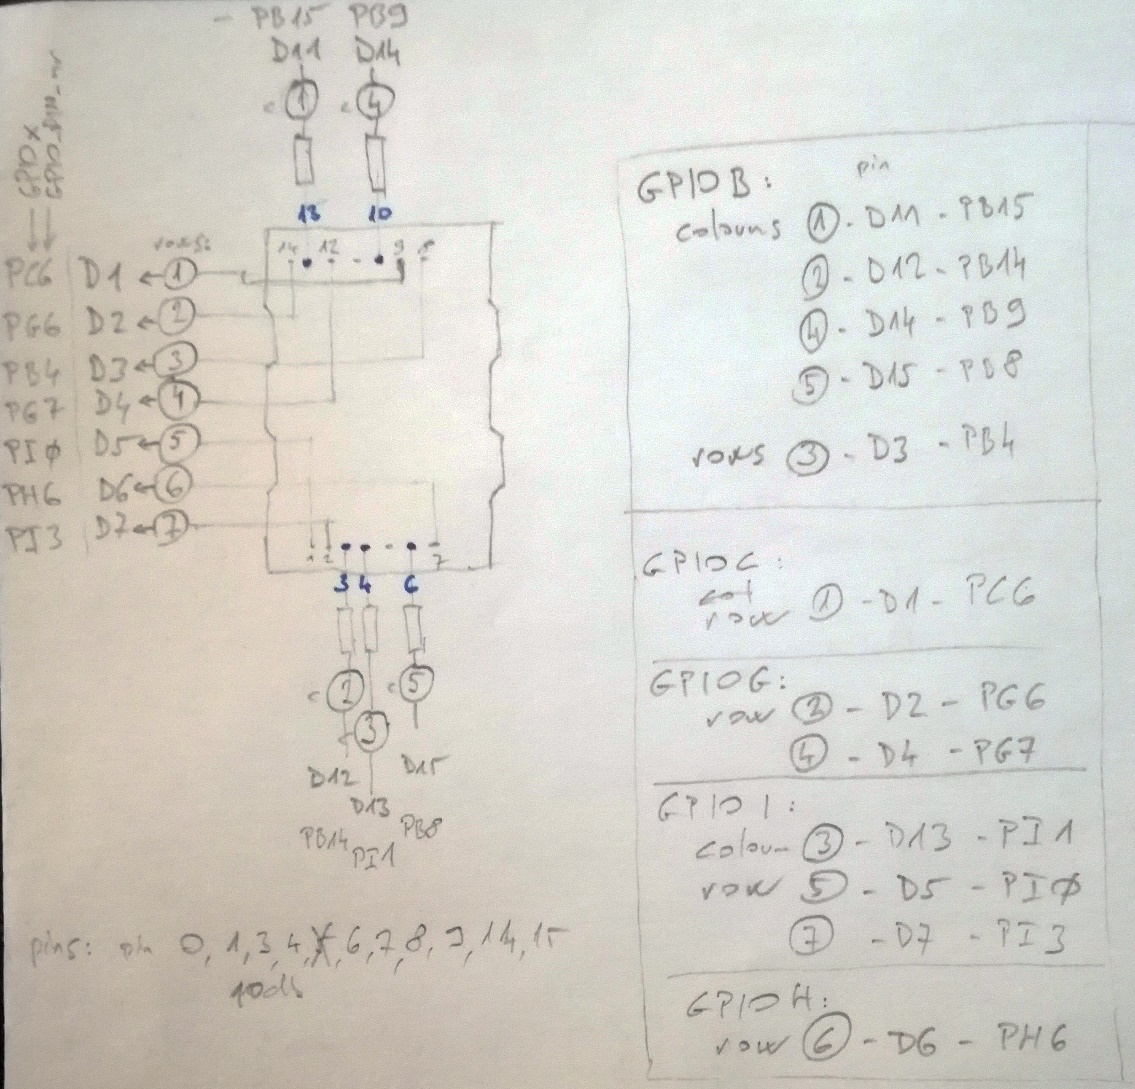 - PB15 PB9
D11 D14
c 1 c 4
GPIOX
13 10
rows:
14 12 9 8
PC6 D1 ← 1
PG6 D2 ← 2
PB4 D3 ← 3
PG7 D4 ← 4
PIØ D5 ← 5
PH6 D6 ← 6
PI3 D7 ← 7
1 2 7
3 4 6
c 2 c 5
3
D12 D15
D13
PB14 PB8
PI1
pins: on 0, 1, 3, 4, 6, 7, 8, 9, 14, 15
GPIOB: pin
colouns 1 - D11 - PB15
2 - D12 - PB14
4 - D14 - PB9
5 - D15 - PB8
rows 3 - D3 - PB4
GPIOC:
row 1 - D1 - PC6
GPIOG:
row 2 - D2 - PG6
4 - D4 - PG7
GPIOI:
coloun 3 - D13 - PI1
row 5 - D5 - PIØ
7 - D7 - PI3
GPIOH:
row 6 - D6 - PH6